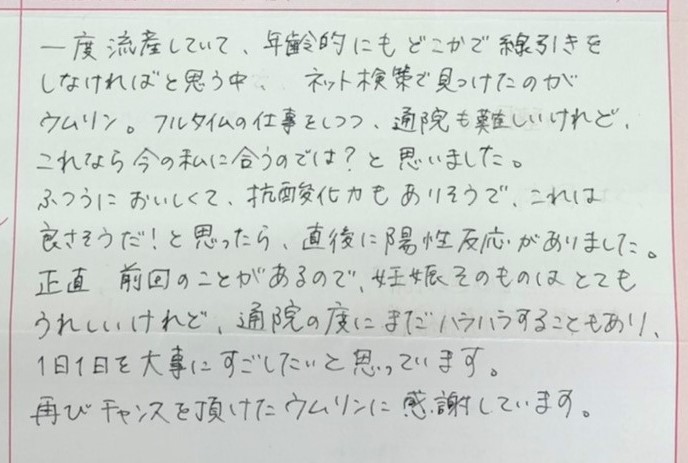 一度流産していて、年齢的にもどこかで線引きを
しなければと思う中、ネット検索で見つけたのが
ウムリン。フルタイムの仕事をしつつ、通院も難しいけれど、
これなら今の私に合うのでは?と思いました。
ふつうにおいしくて、抗酸化力もありそうで、これは
良さそうだ!と思ったら、直後に陽性反応がありました。
正直 前回のことがあるので、妊娠そのものはとても
うれしいけれど、通院の度にまだハラハラすることもあり、
1日1日を大事にすごしたいと思っています。
再びチャンスを頂けたウムリンに感謝しています。